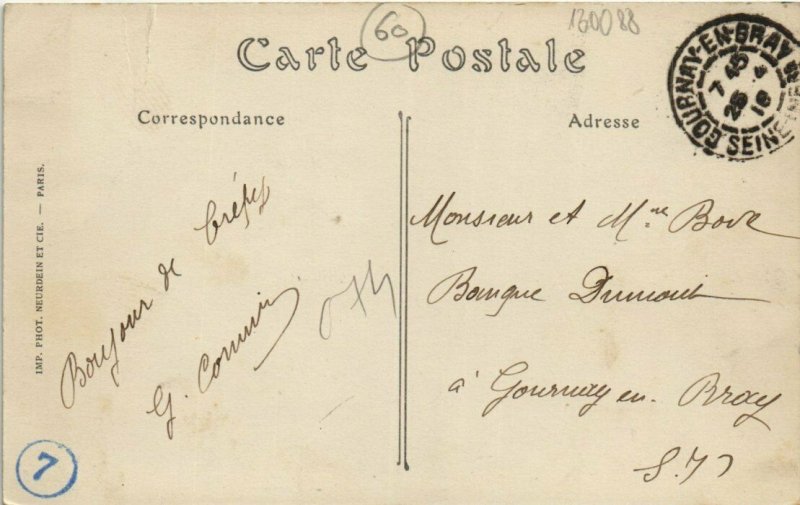 60
130088
Carte Postale
GOURNAY-EN-BRAY
7 45
25 4
10
SEINE-INFRE
Correspondance
Adresse
IMP. PHOT. NEURDEIN ET CIE. — PARIS.
Bonjour de Crépy
G.
Monsieur et Mme Bove
Banque Dumont
à Gournay en Bray
S. I
7